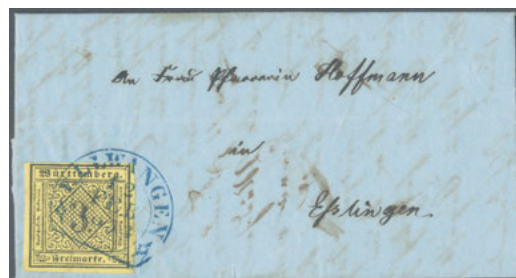 An Frau Pfarrerin Hoffmann
in
Eßlingen.
Württemberg.
3.
Freimarke.